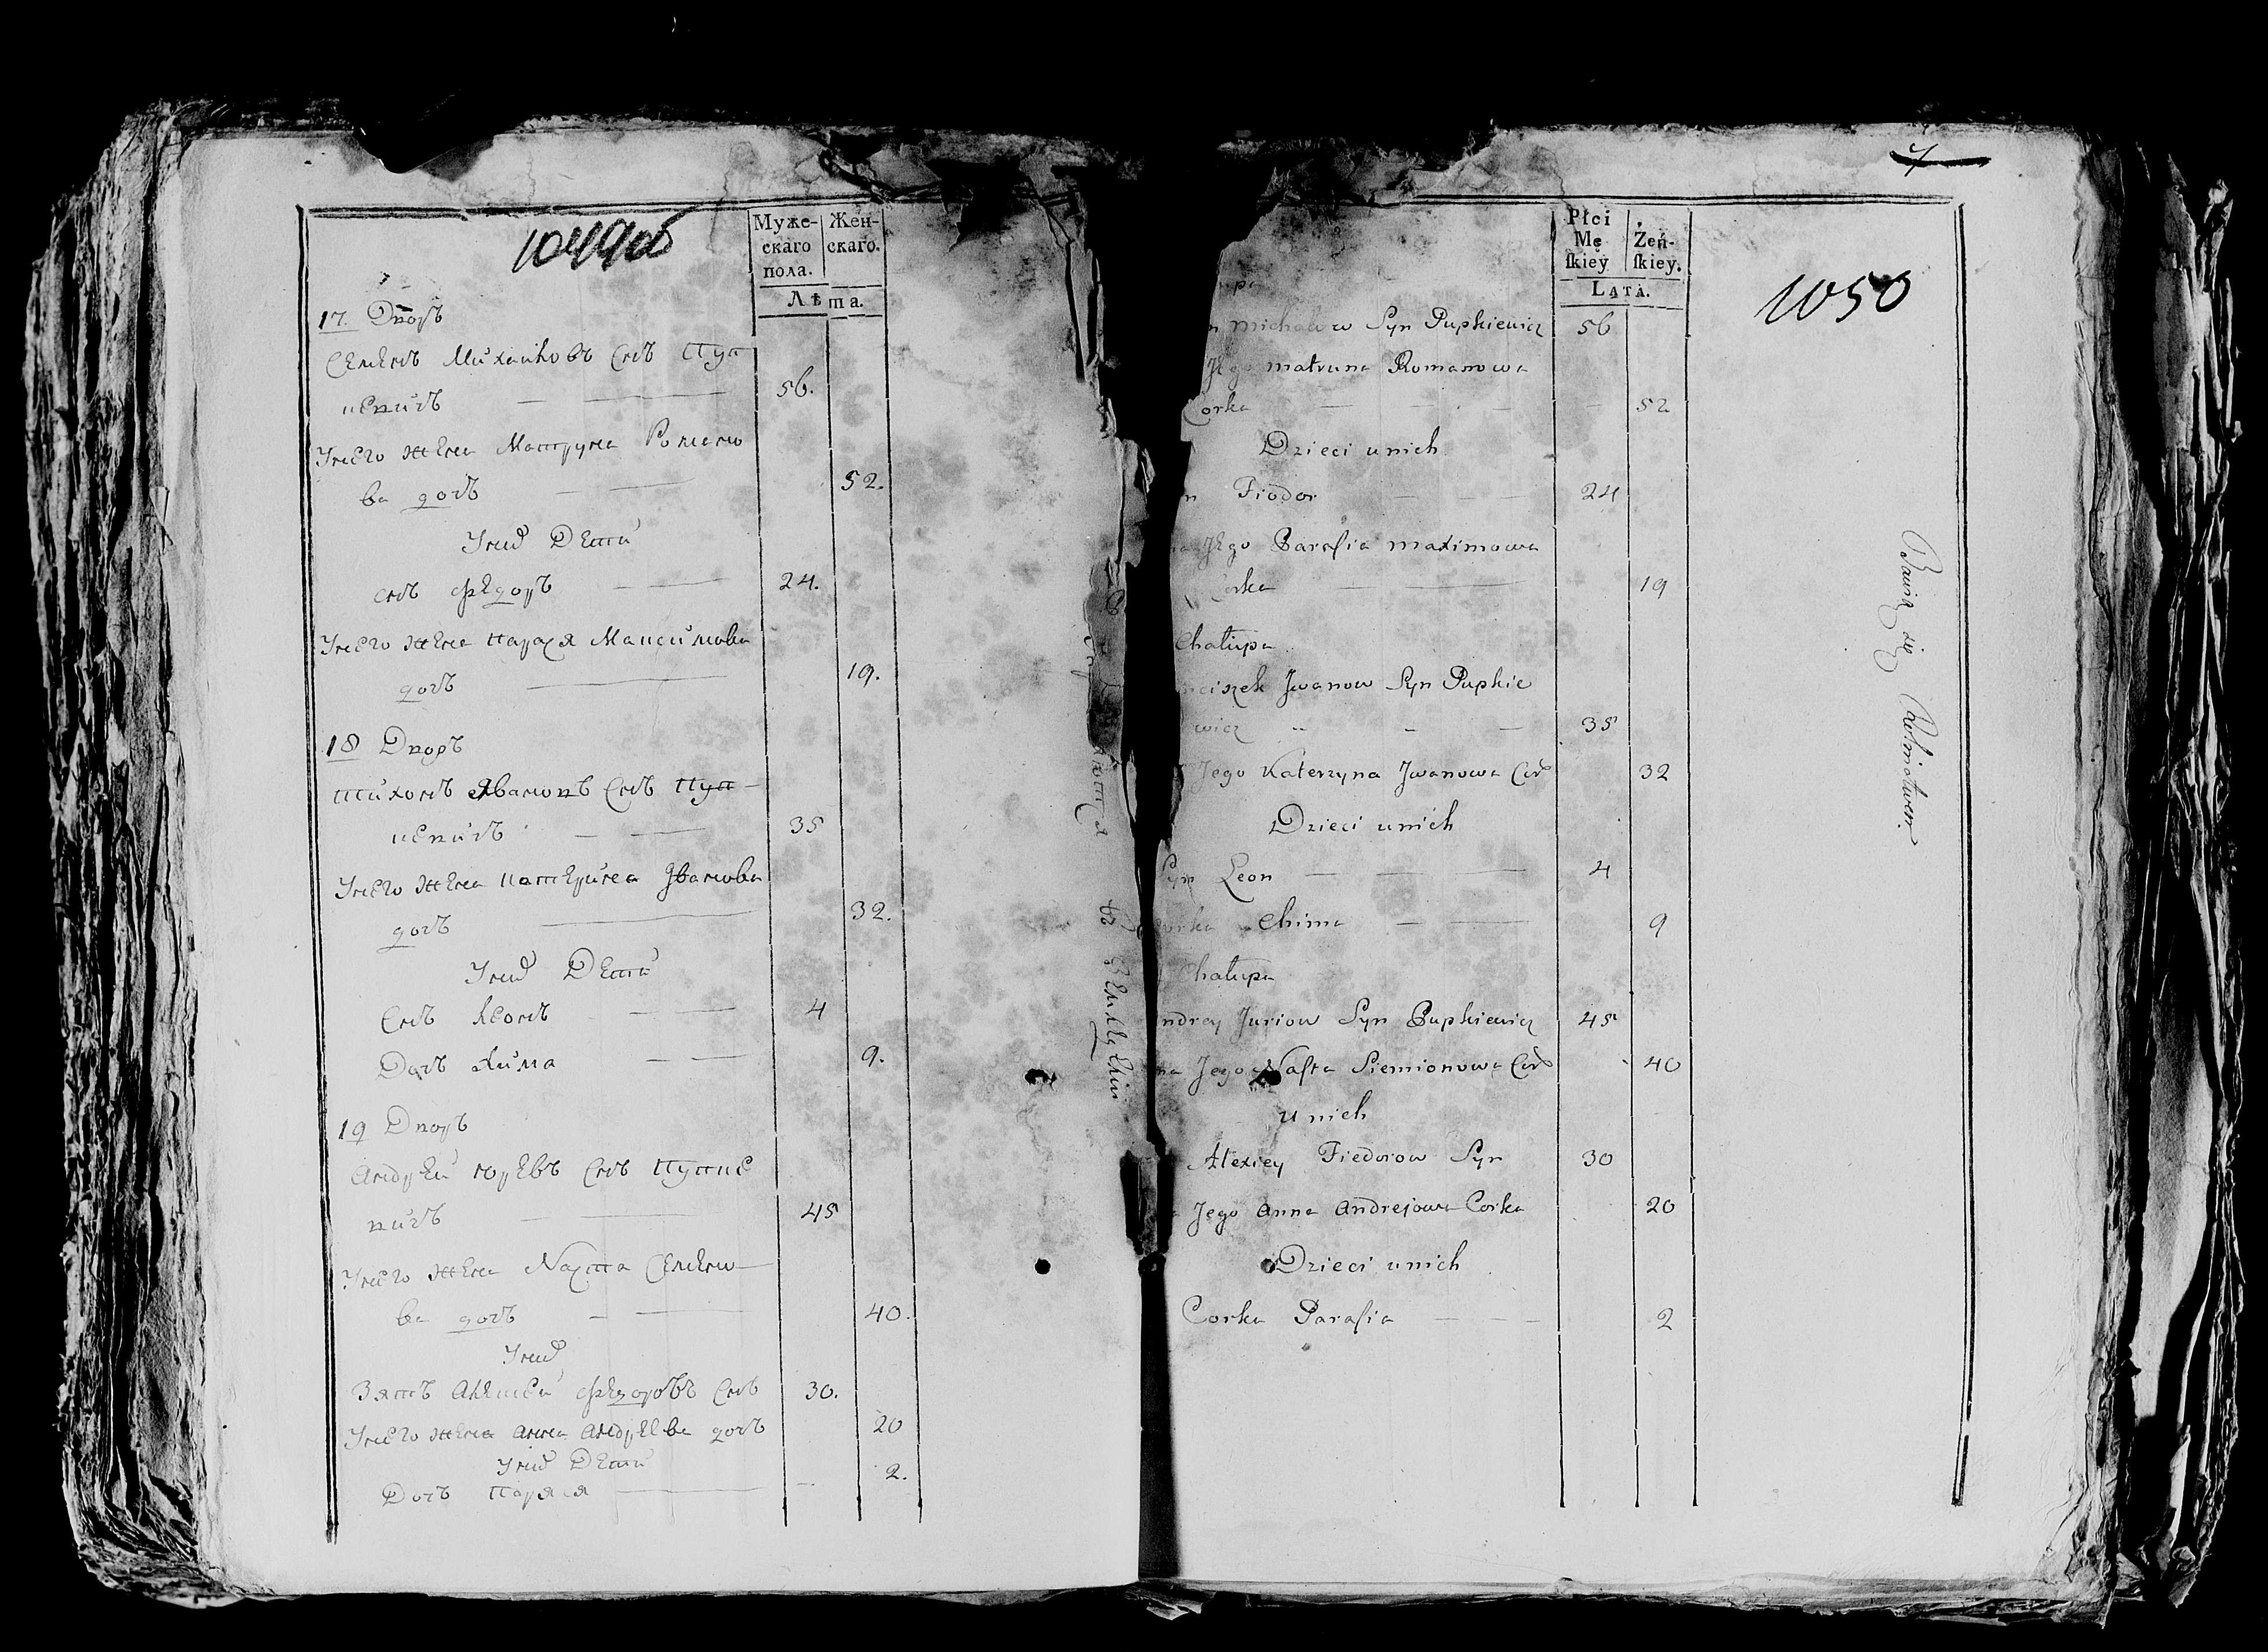 1049об
Муже-
скаго
пола.
Жен-
скаго.
Лѣта.
17. Дворъ
Семенъ Михайловъ Снъ Пуп
кевичъ — — 56.
Унего жена Матруна Романо
ва дочъ — — 52.
Уних Дети
снъ федоръ — — 24.
Унего жена парася Максимова
дочъ — 19.
18 Дворъ
Тихонъ Ивановъ Снъ Пуп-
кевичъ — — 35
Унего жена катерина Иванова
дочъ — 32.
Уних Дети
Снъ Леонъ — — 4
Дочъ хима — — 9.
19 Дворъ
Андрей юревъ Снъ Пупке
вичъ — 45
Унего жена Наста Семено-
ва дочъ — — 40.
Уних
Зять Алексей федоровъ Снъ 30.
Унего жена анна андреева дочъ 20
Уних Дети
Дочъ Парася — 2.
Płci
Mę
ſkiey
Żeń-
ſkiey.
Lata.
1050
michałow Syn Pupkiewicz 56
Jego matruna Romanowa
Corka — — — 52
Dzieci unich
Fiodor — — — 24
Jego Parasia maximowa
Corka — 19
Chałupa
Jwanow Syn Pupkie
wicz — 35
Jego Katerzyna Jwanowa Cor 32
Dzieci unich
Syn Leon — — — 4
Corka Chima — — 9
Chałupa
Juriow Syn Pupkiewicz 45
Jego Nasta Siemionowa Cor 40
u nich
Alexiey Fiedorow Syn 30
Jego Anna Andrejowa Corka 20
Dzieci unich
Corka Parasia — — — 2
Bawią się Rolnictwem